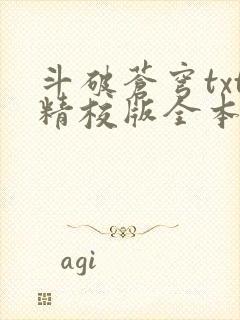 斗破蒼穹txt
精校版全本
agi